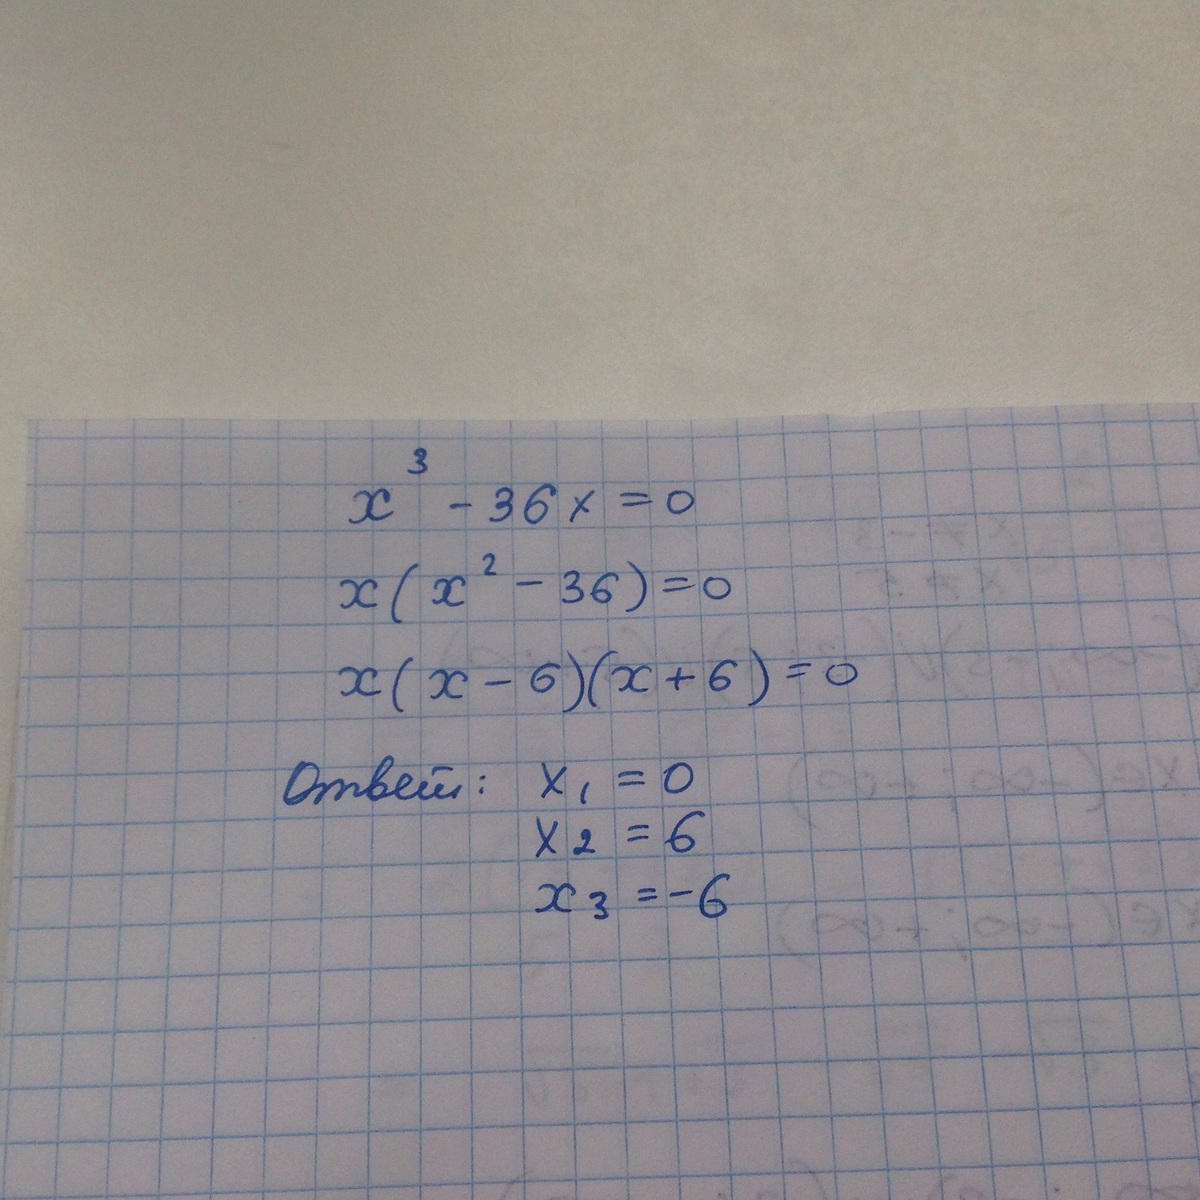 x³ - 36x = 0
x(x² - 36) = 0
x(x - 6)(x + 6) = 0
Ответ: x₁ = 0
x₂ = 6
x₃ = -6